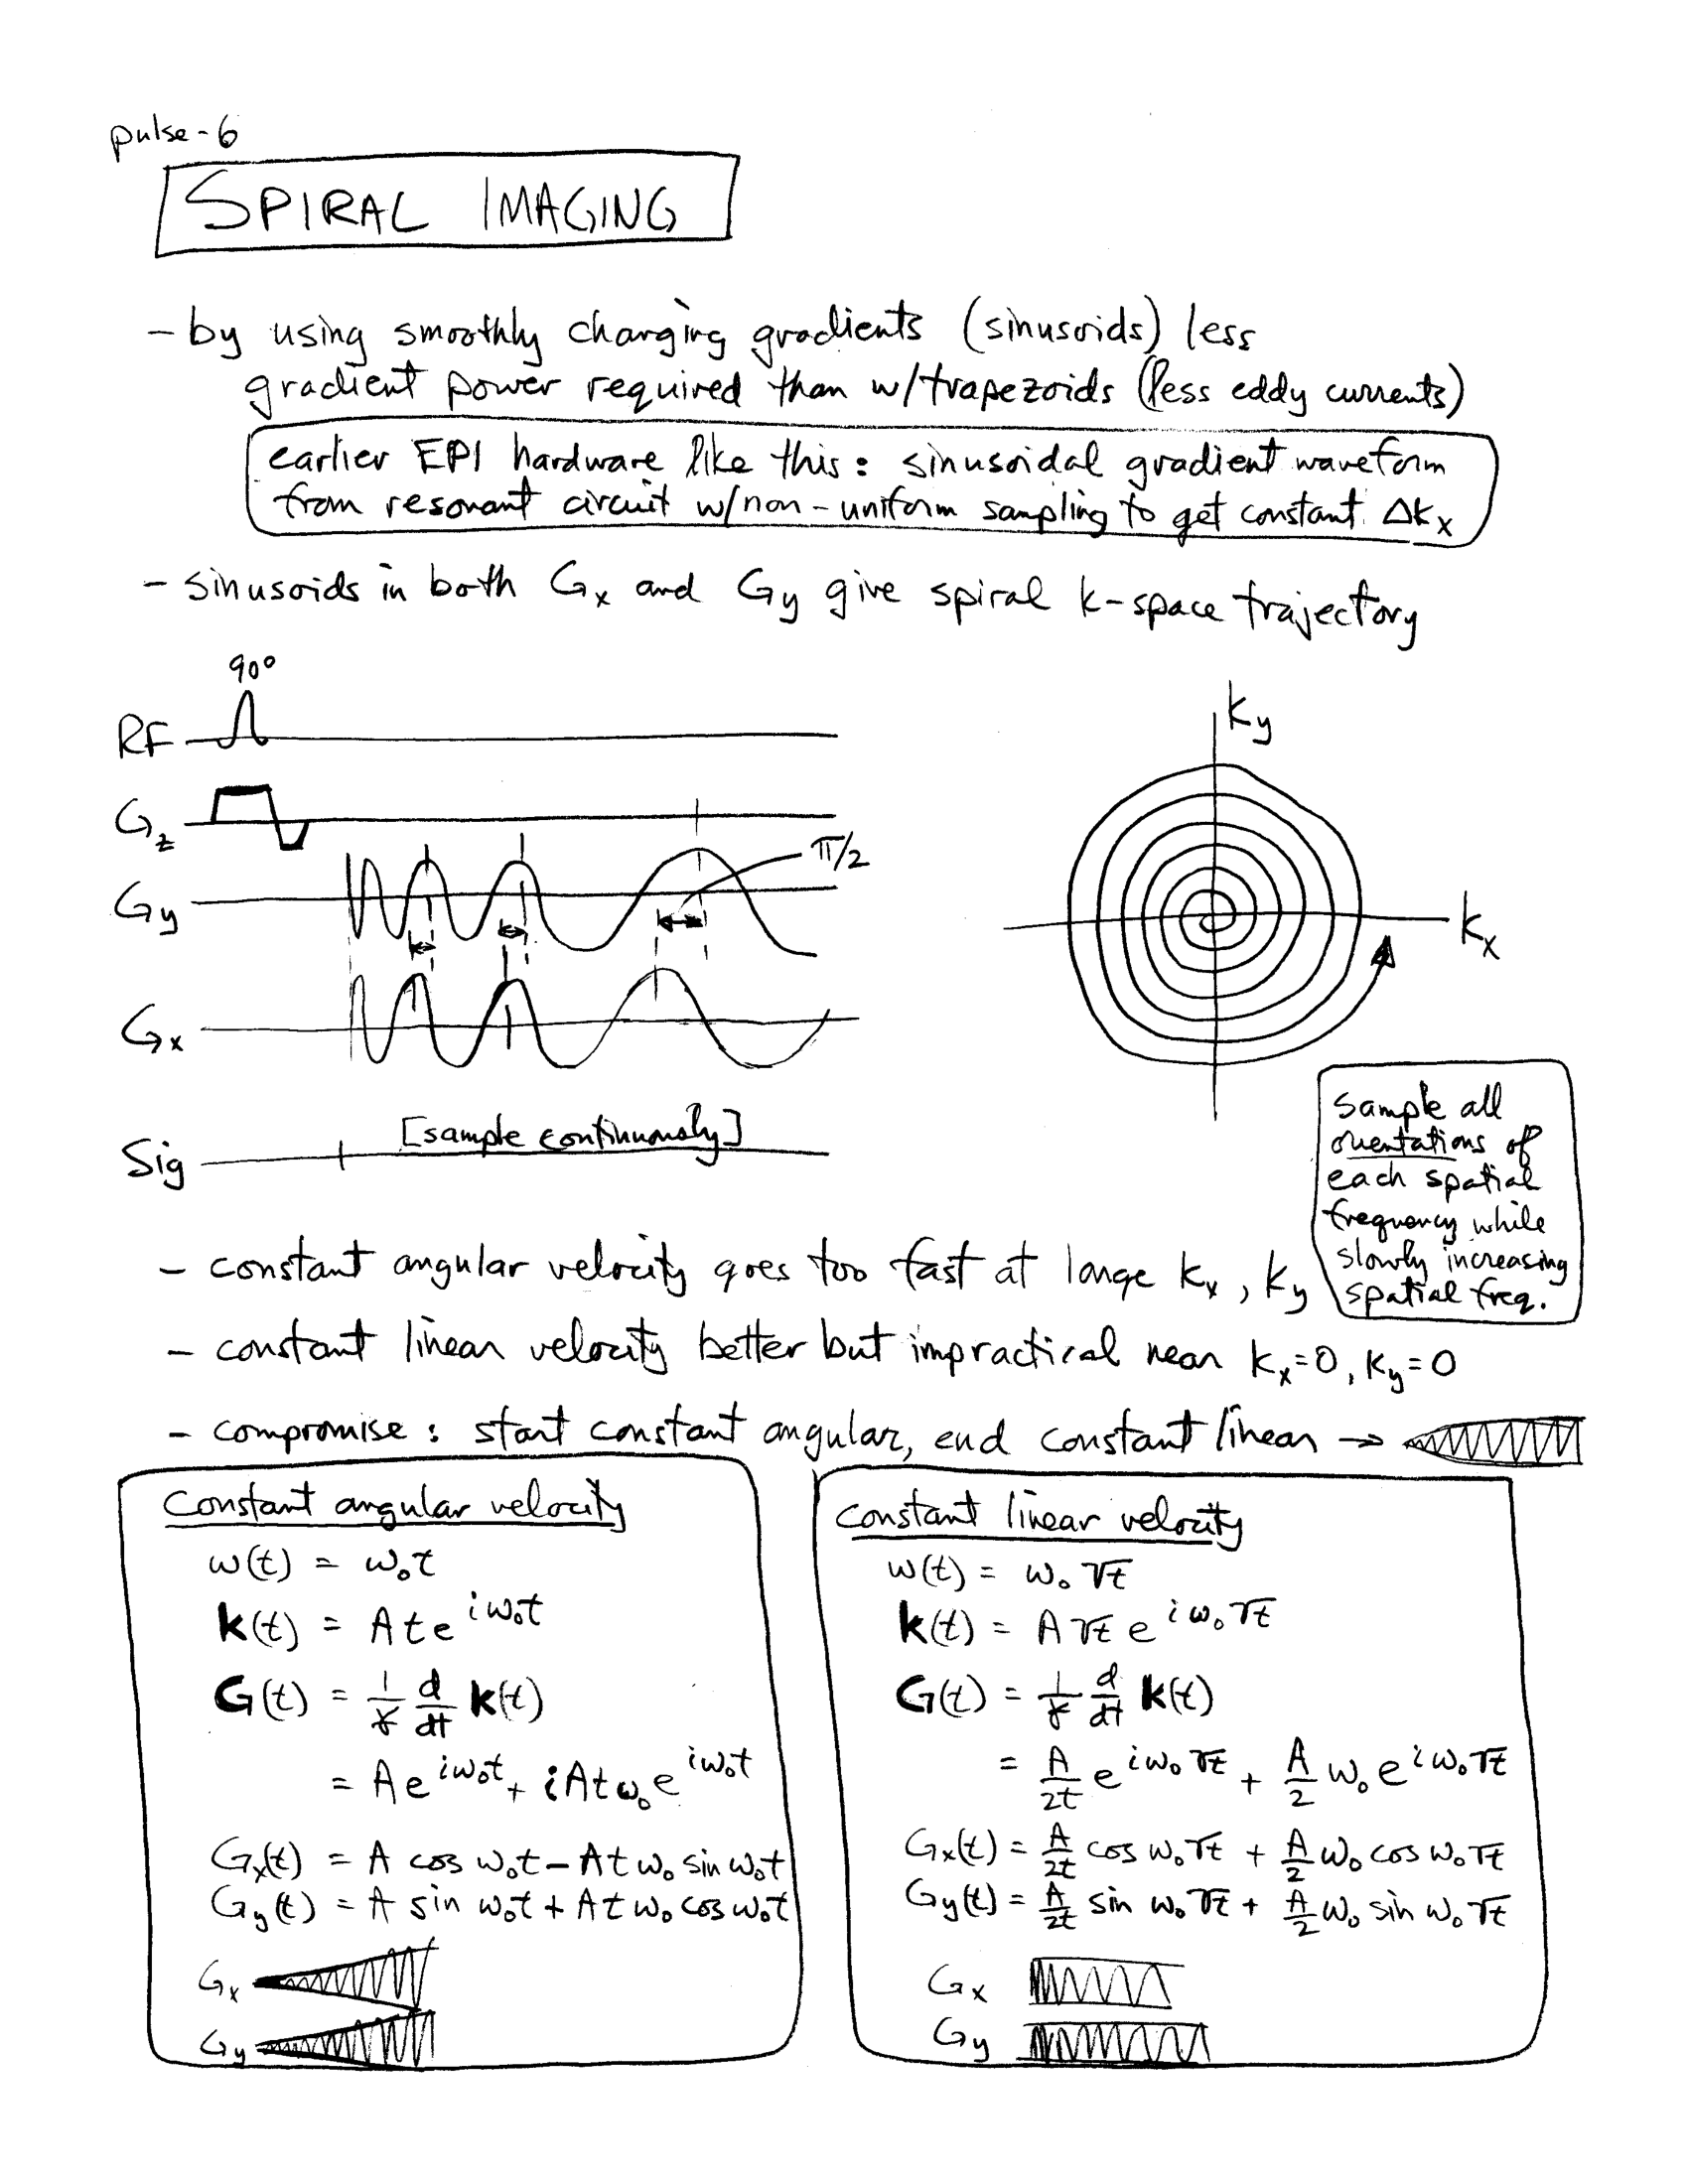 pulse-6
SPIRAL IMAGING
- by using smoothly changing gradients (sinusoids) less
gradient power required than w/trapezoids (less eddy currents)
earlier EPI hardware like this: sinusoidal gradient waveform
from resonant circuit w/non-uniform sampling to get constant Δkx
- sinusoids in both Gx and Gy give spiral k-space trajectory
90°
RF
Gz
π/2
Gy
Gx
Sig [sample continuously]
ky
kx
sample all
orientations of
each spatial
frequency while
slowly increasing
spatial freq.
- constant angular velocity goes too fast at large kx, ky
- constant linear velocity better but impractical near kx=0, ky=0
- compromise: start constant angular, end constant linear →
Constant angular velocity
ω(t) = ω₀t
k(t) = A t e^{iω₀t}
G(t) = 1/γ d/dt k(t)
= A e^{iω₀t} + i A t ω₀ e^{iω₀t}
Gx(t) = A cos ω₀t - A t ω₀ sin ω₀t
Gy(t) = A sin ω₀t + A t ω₀ cos ω₀t
Gx
Gy
constant linear velocity
ω(t) = ω₀ √t
k(t) = A √t e^{iω₀√t}
G(t) = 1/γ d/dt k(t)
= A/2t e^{iω₀√t} + A/2 ω₀ e^{iω₀√t}
Gx(t) = A/2t cos ω₀√t + A/2 ω₀ cos ω₀√t
Gy(t) = A/2t sin ω₀√t + A/2 ω₀ sin ω₀√t
Gx
Gy